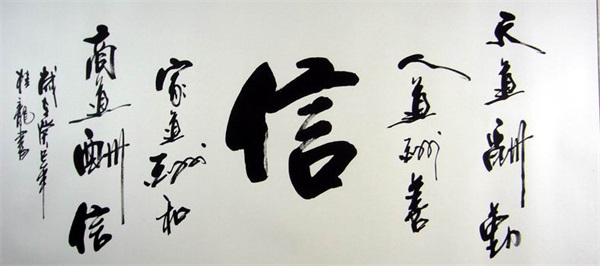 天道酬勤
人道酬善
信
家道酬和
商道酬信
歲在癸巳年
桂龍書